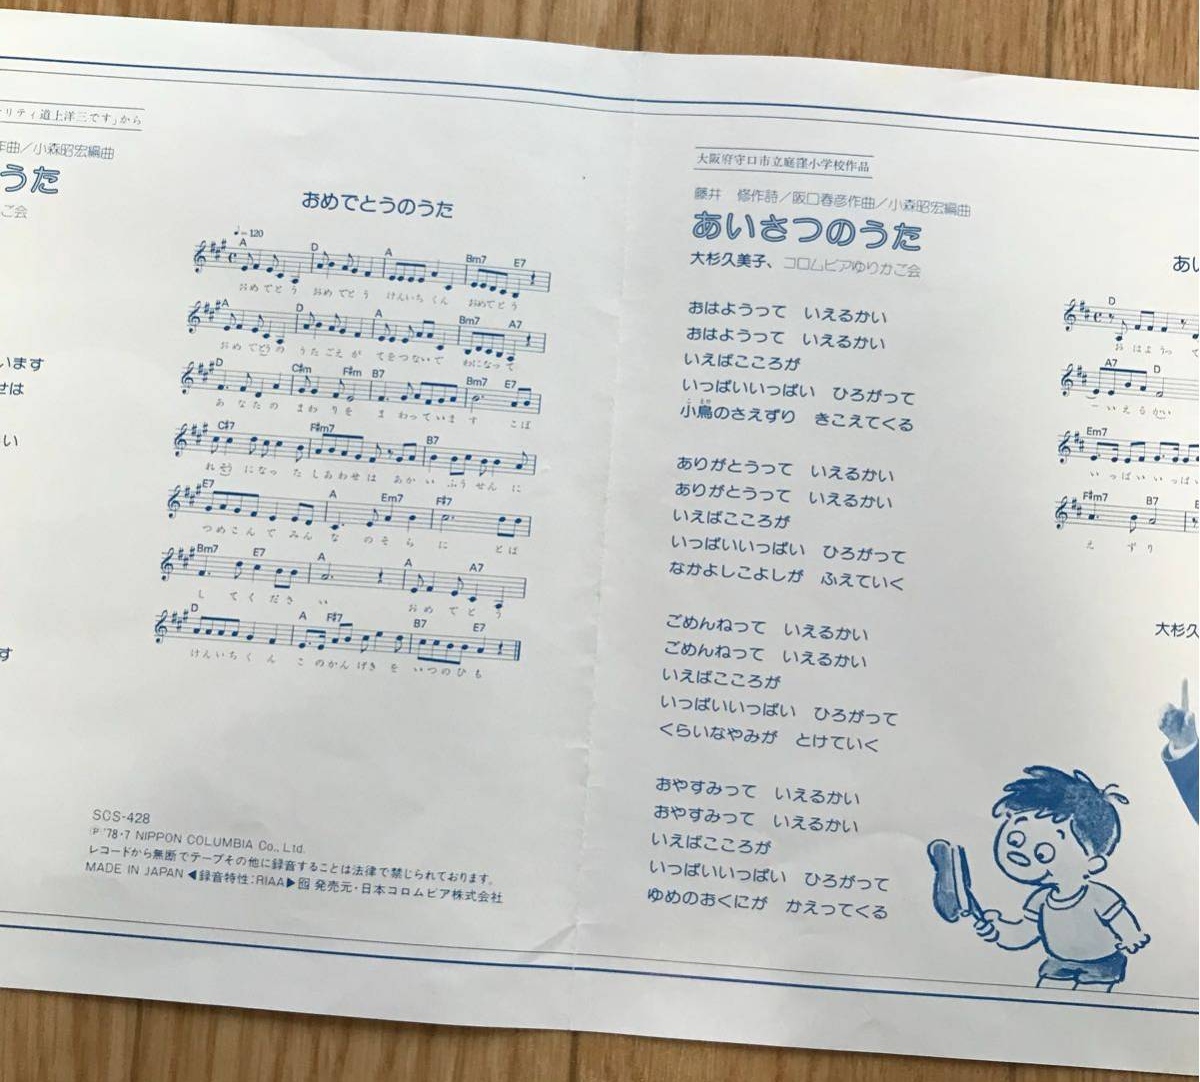 リティ道上洋三です」から
作曲／小森昭宏編曲
うた
ご会
います
せは
い
す
おめでとうのうた
♩=120
A D A Bm7 E7
おめでとう おめでとう けんいちくん おめでとう
A D A Bm7 A7
おめでとうの うたごえが てをつないで わになって
D C#m F#m B7 Bm7 E7
あなたの まわりを まわっています こぼ
C#7 F#m7 B7
れそうになった しあわせは あかい ふうせんに
E7 A Em7 F#7
つめこんで みんなの そらに とば
Bm7 E7 A A A7
してください おめでとう
D A F#7 B7 E7
けんいちくん このかんげきを いつのひも
SCS-428
Ⓟ'78・7 NIPPON COLUMBIA Co., Ltd.
レコードから無断でテープその他に録音することは法律で禁じられております。
MADE IN JAPAN ◀録音特性:RIAA▶ 発売元・日本コロムビア株式会社
大阪府守口市立庭窪小学校作品
藤井 修作詩／阪口春彦作曲／小森昭宏編曲
あいさつのうた
大杉久美子、コロムビアゆりかご会
おはようって いえるかい
おはようって いえるかい
いえばこころが
いっぱいいっぱい ひろがって
小鳥のさえずり きこえてくる
ありがとうって いえるかい
ありがとうって いえるかい
いえばこころが
いっぱいいっぱい ひろがって
なかよしこよしが ふえていく
ごめんねって いえるかい
ごめんねって いえるかい
いえばこころが
いっぱいいっぱい ひろがって
くらいなやみが とけていく
おやすみって いえるかい
おやすみって いえるかい
いえばこころが
いっぱいいっぱい ひろがって
ゆめのおくにが かえってくる
あい
D
おはようっ
A7 D
ーいえるかい
Em7
いっぱいいっぱい
F#m7 B7
えずり
大杉久